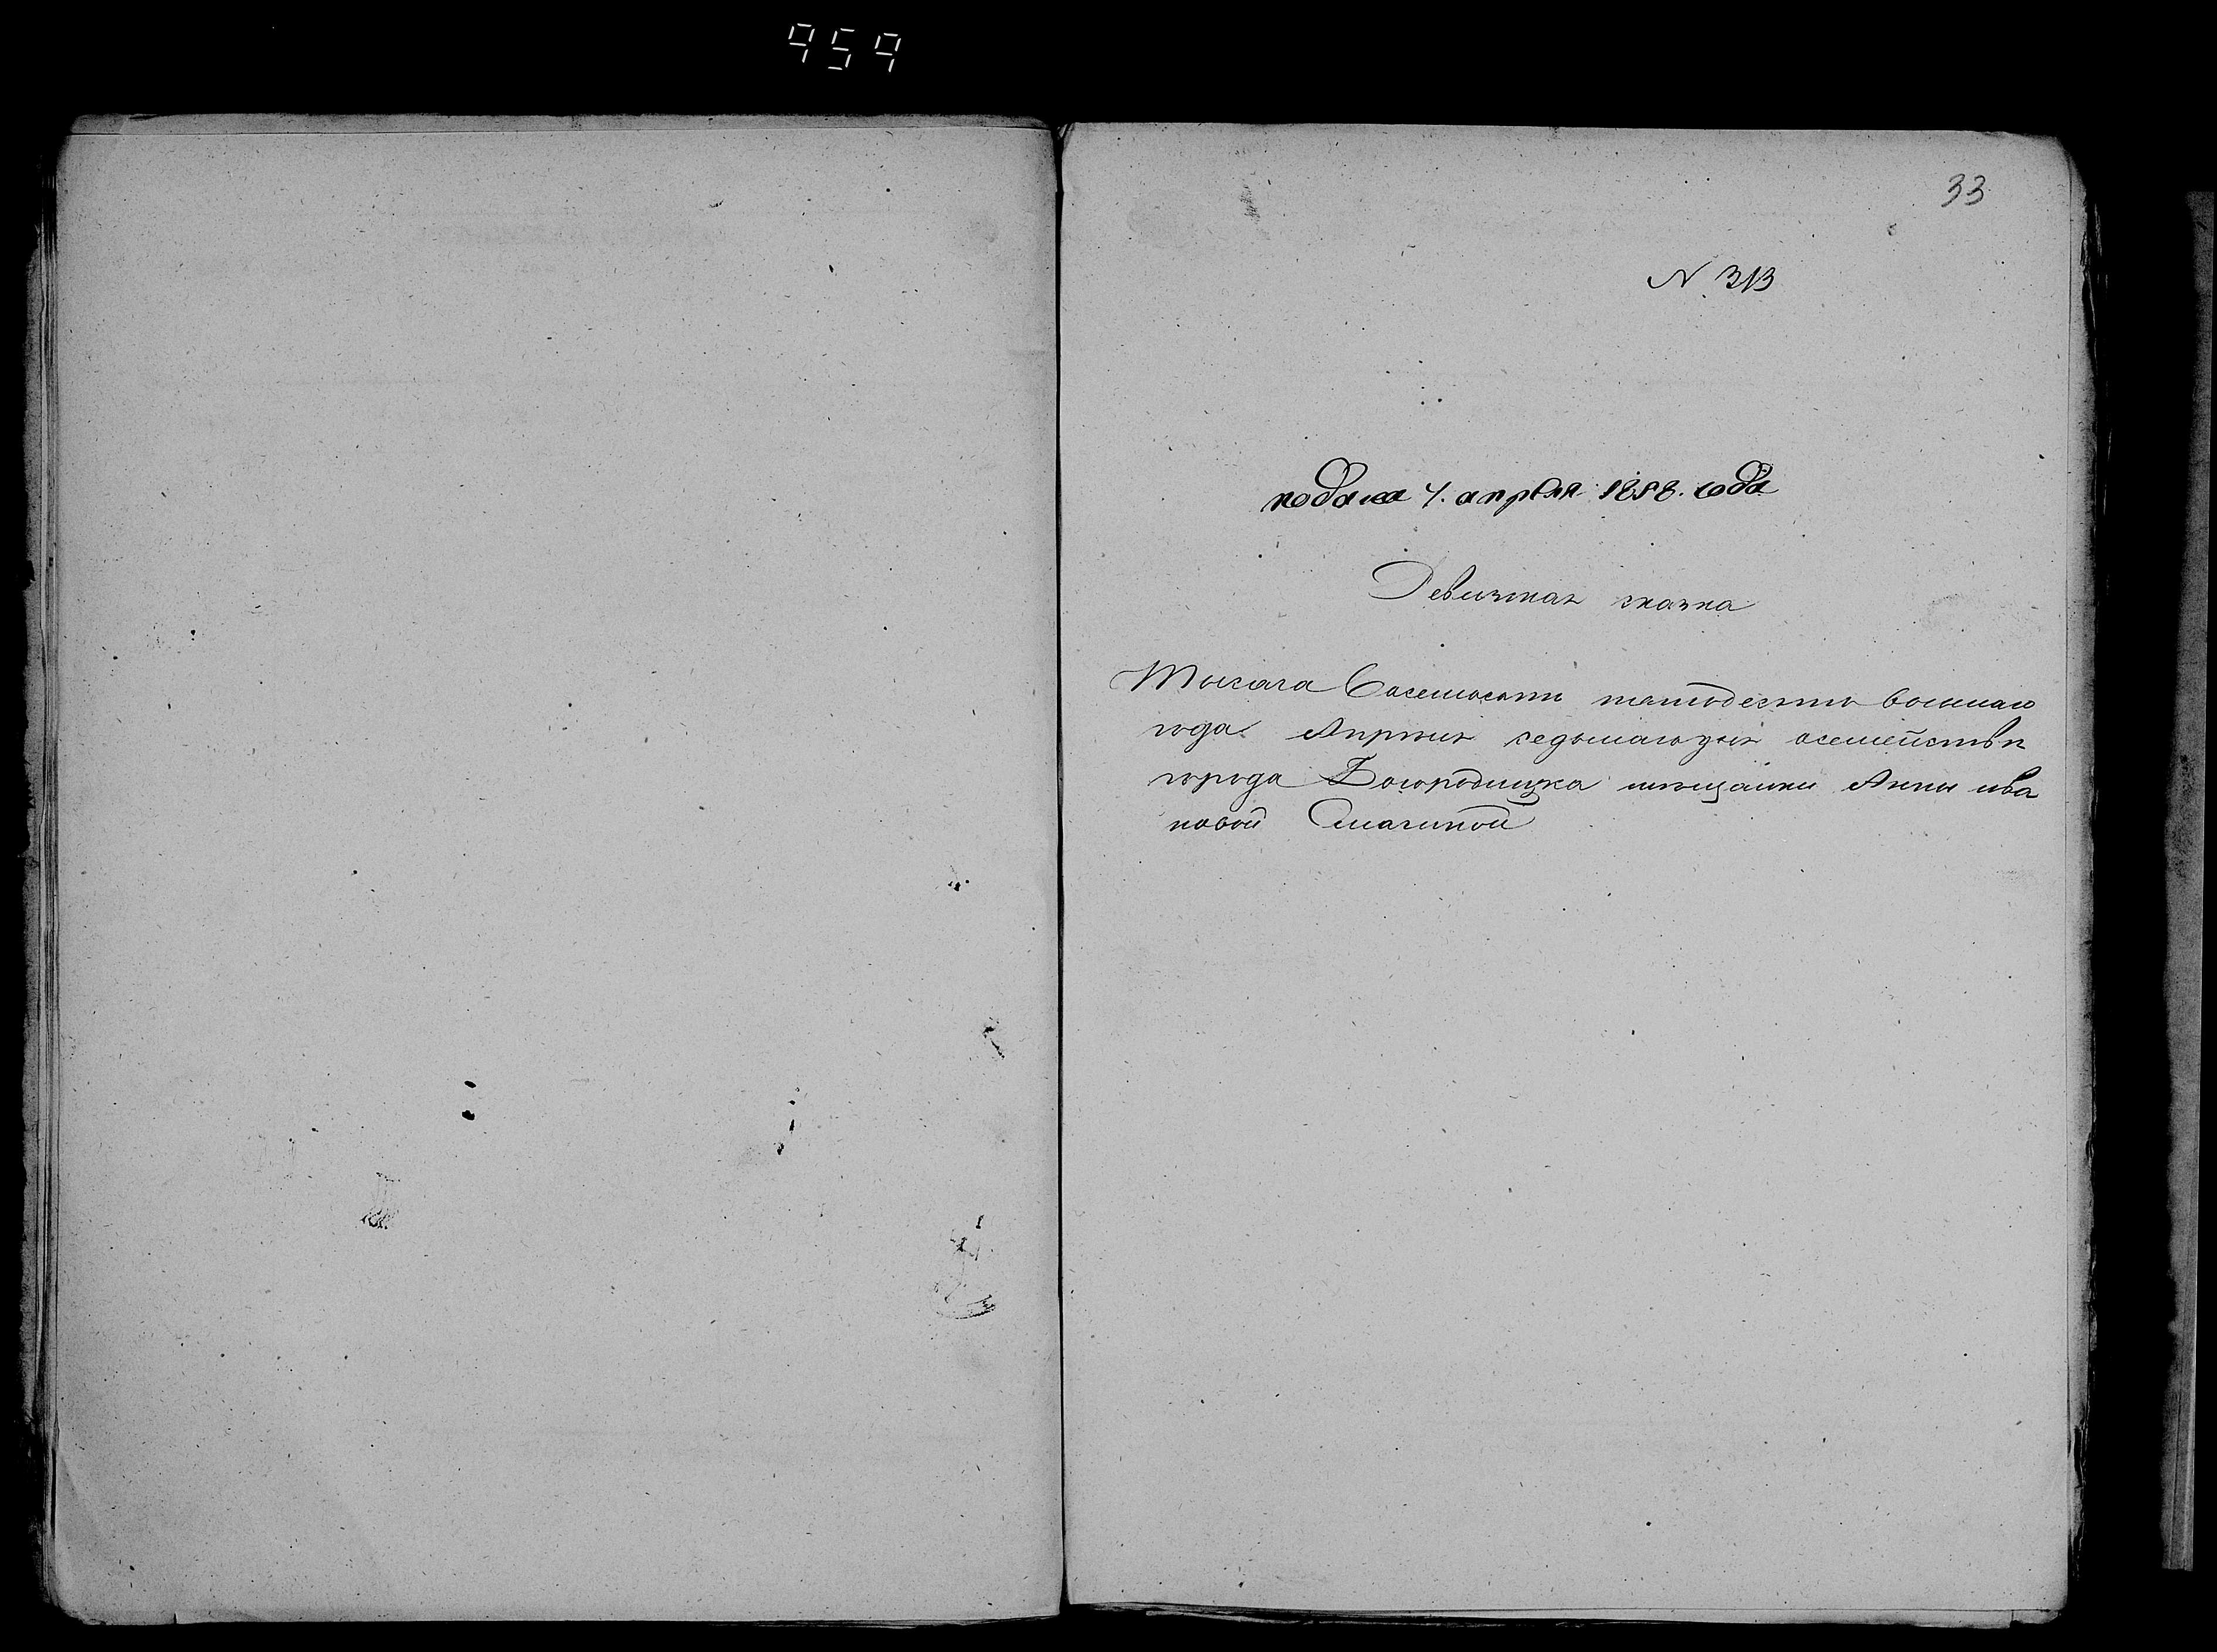 959
33
N. 313
подана 7. апреля 1858. года
Ревизская сказка
Тысяча Восемьсотъ пятьдесятъ восмаго
года Апреля седьмаго дня осемействе
города Богородицка мещанки Анны ива
новой